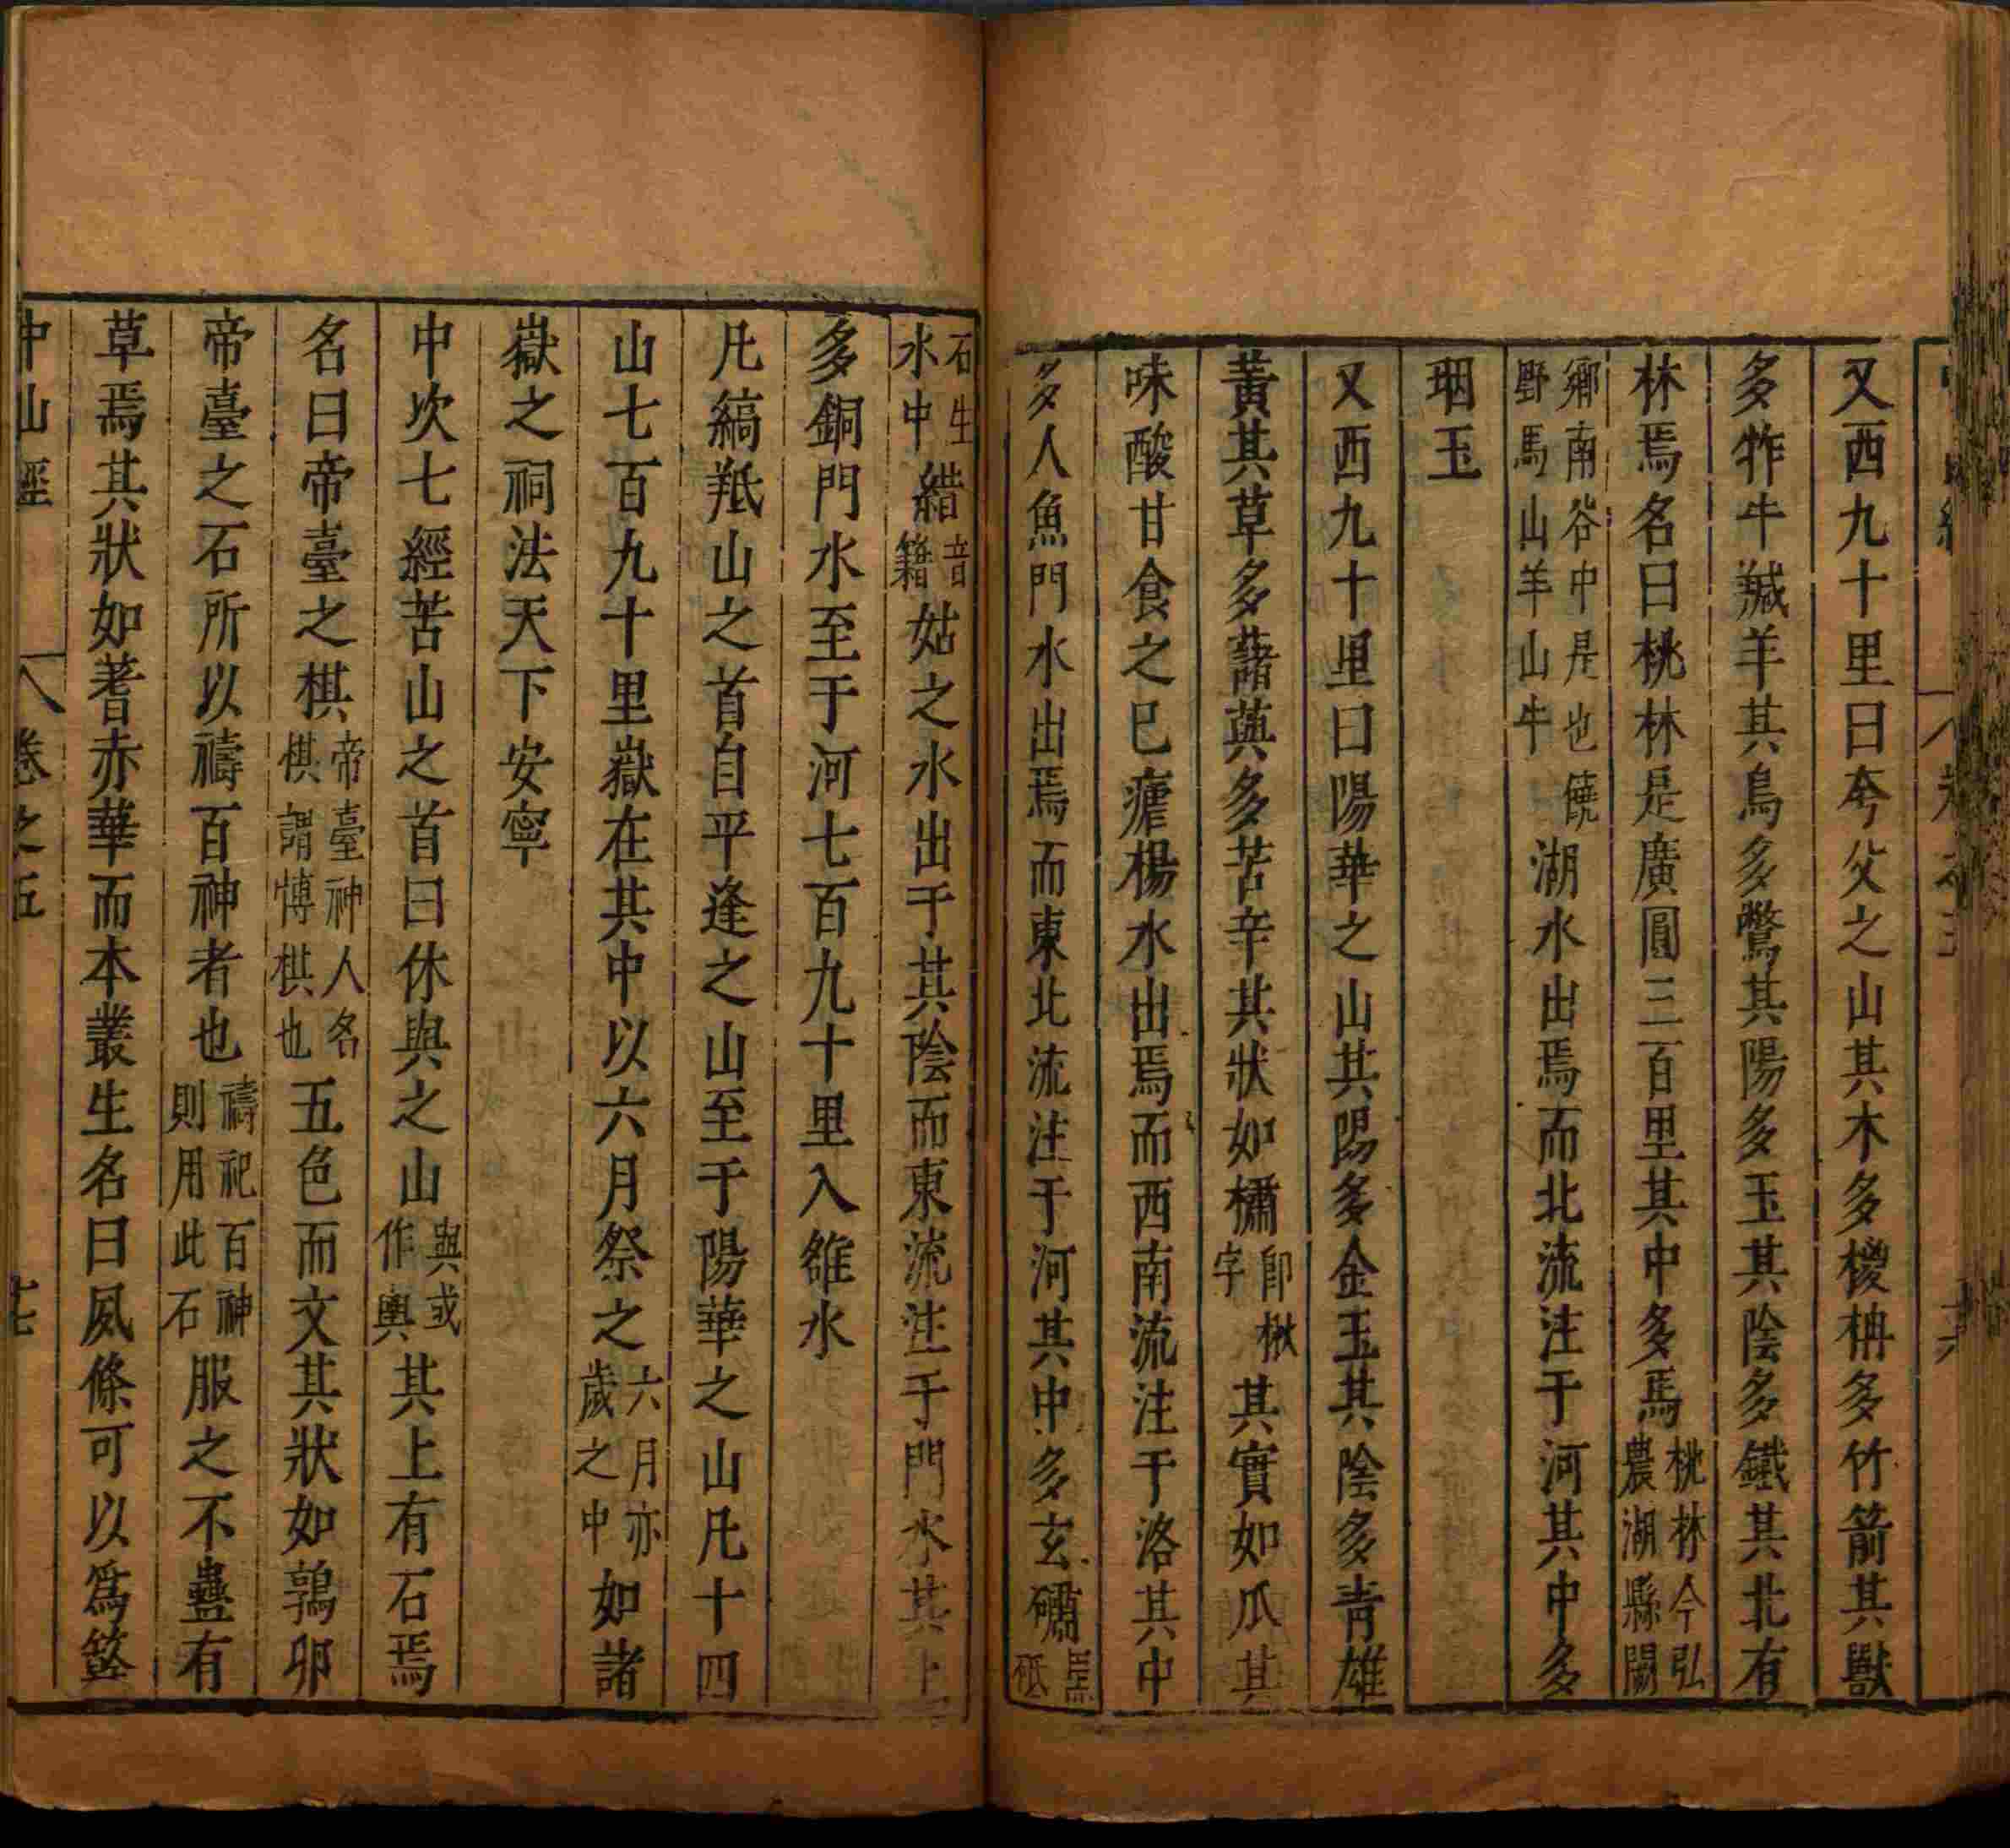 又西九十里曰夸父之山其木多椶枏多竹箭其獸
多㸲牛羬羊其鳥多鷩其陽多玉其陰多鐵其北有
林焉名曰桃林是廣圓三百里其中多馬桃林今弘農湖縣闕
鄉南谷中是也饒野馬山羊山牛湖水出焉而北流注于河其中多
珚玉
又西九十里曰陽華之山其陽多金玉其陰多青雄
黃其草多藷藇多苦辛其狀如橚即楸字其實如瓜其
味酸甘食之已瘧楊水出焉而西南流注于洛其中
多人魚門水出焉而東北流注于河其中多玄䃤黑砥
石生水中䊞音籍姑之水出于其陰而東流注于門水其上
多銅門水至于河七百九十里入雒水
凡縞羝山之首自平逢之山至于陽華之山凡十四
山七百九十里嶽在其中以六月祭之六月亦歲之中如諸
嶽之祠法天下安寧
中次七經苦山之首曰休與之山與或作輿其上有石焉
名曰帝臺之棋帝臺神人名棋謂博棋也五色而文其狀如鶉卵
帝臺之石所以禱百神者也禱祀百神則用此石服之不蠱有
草焉其狀如蓍赤華而本叢生名曰夙條可以為簳
中山經 卷之五 十七